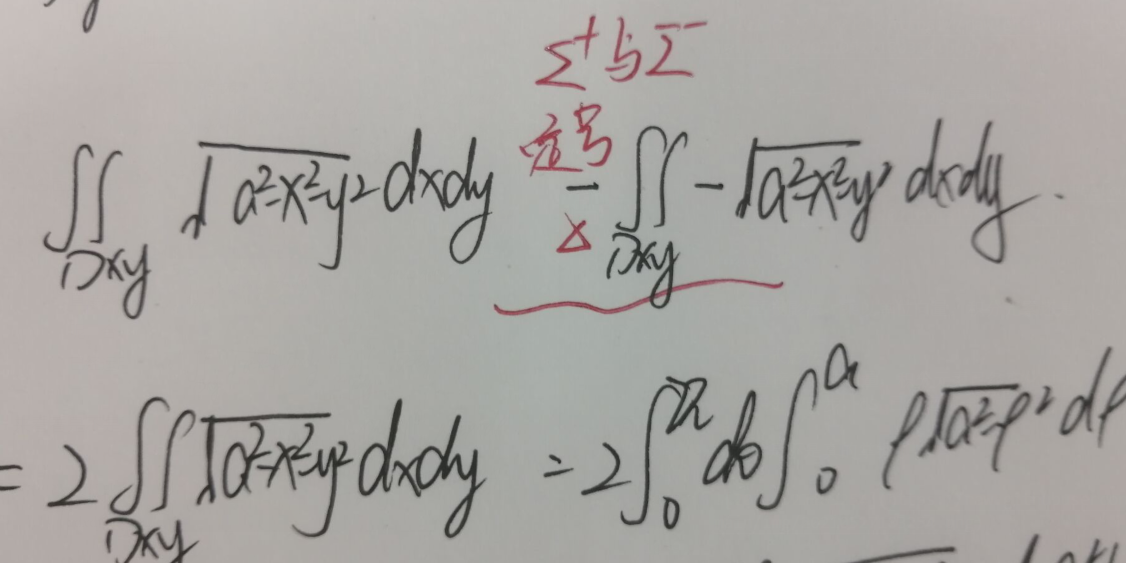 Σ⁺与Σ⁻
定号
∬Dxy √(a²-x²-y²) dxdy - ∬Dxy -√(a²-x²-y²) dxdy.
Δ
= 2∬Dxy √(a²-x²-y²) dxdy = 2∫₀^2π dθ ∫₀^a ρ√(a²-ρ²) dρ